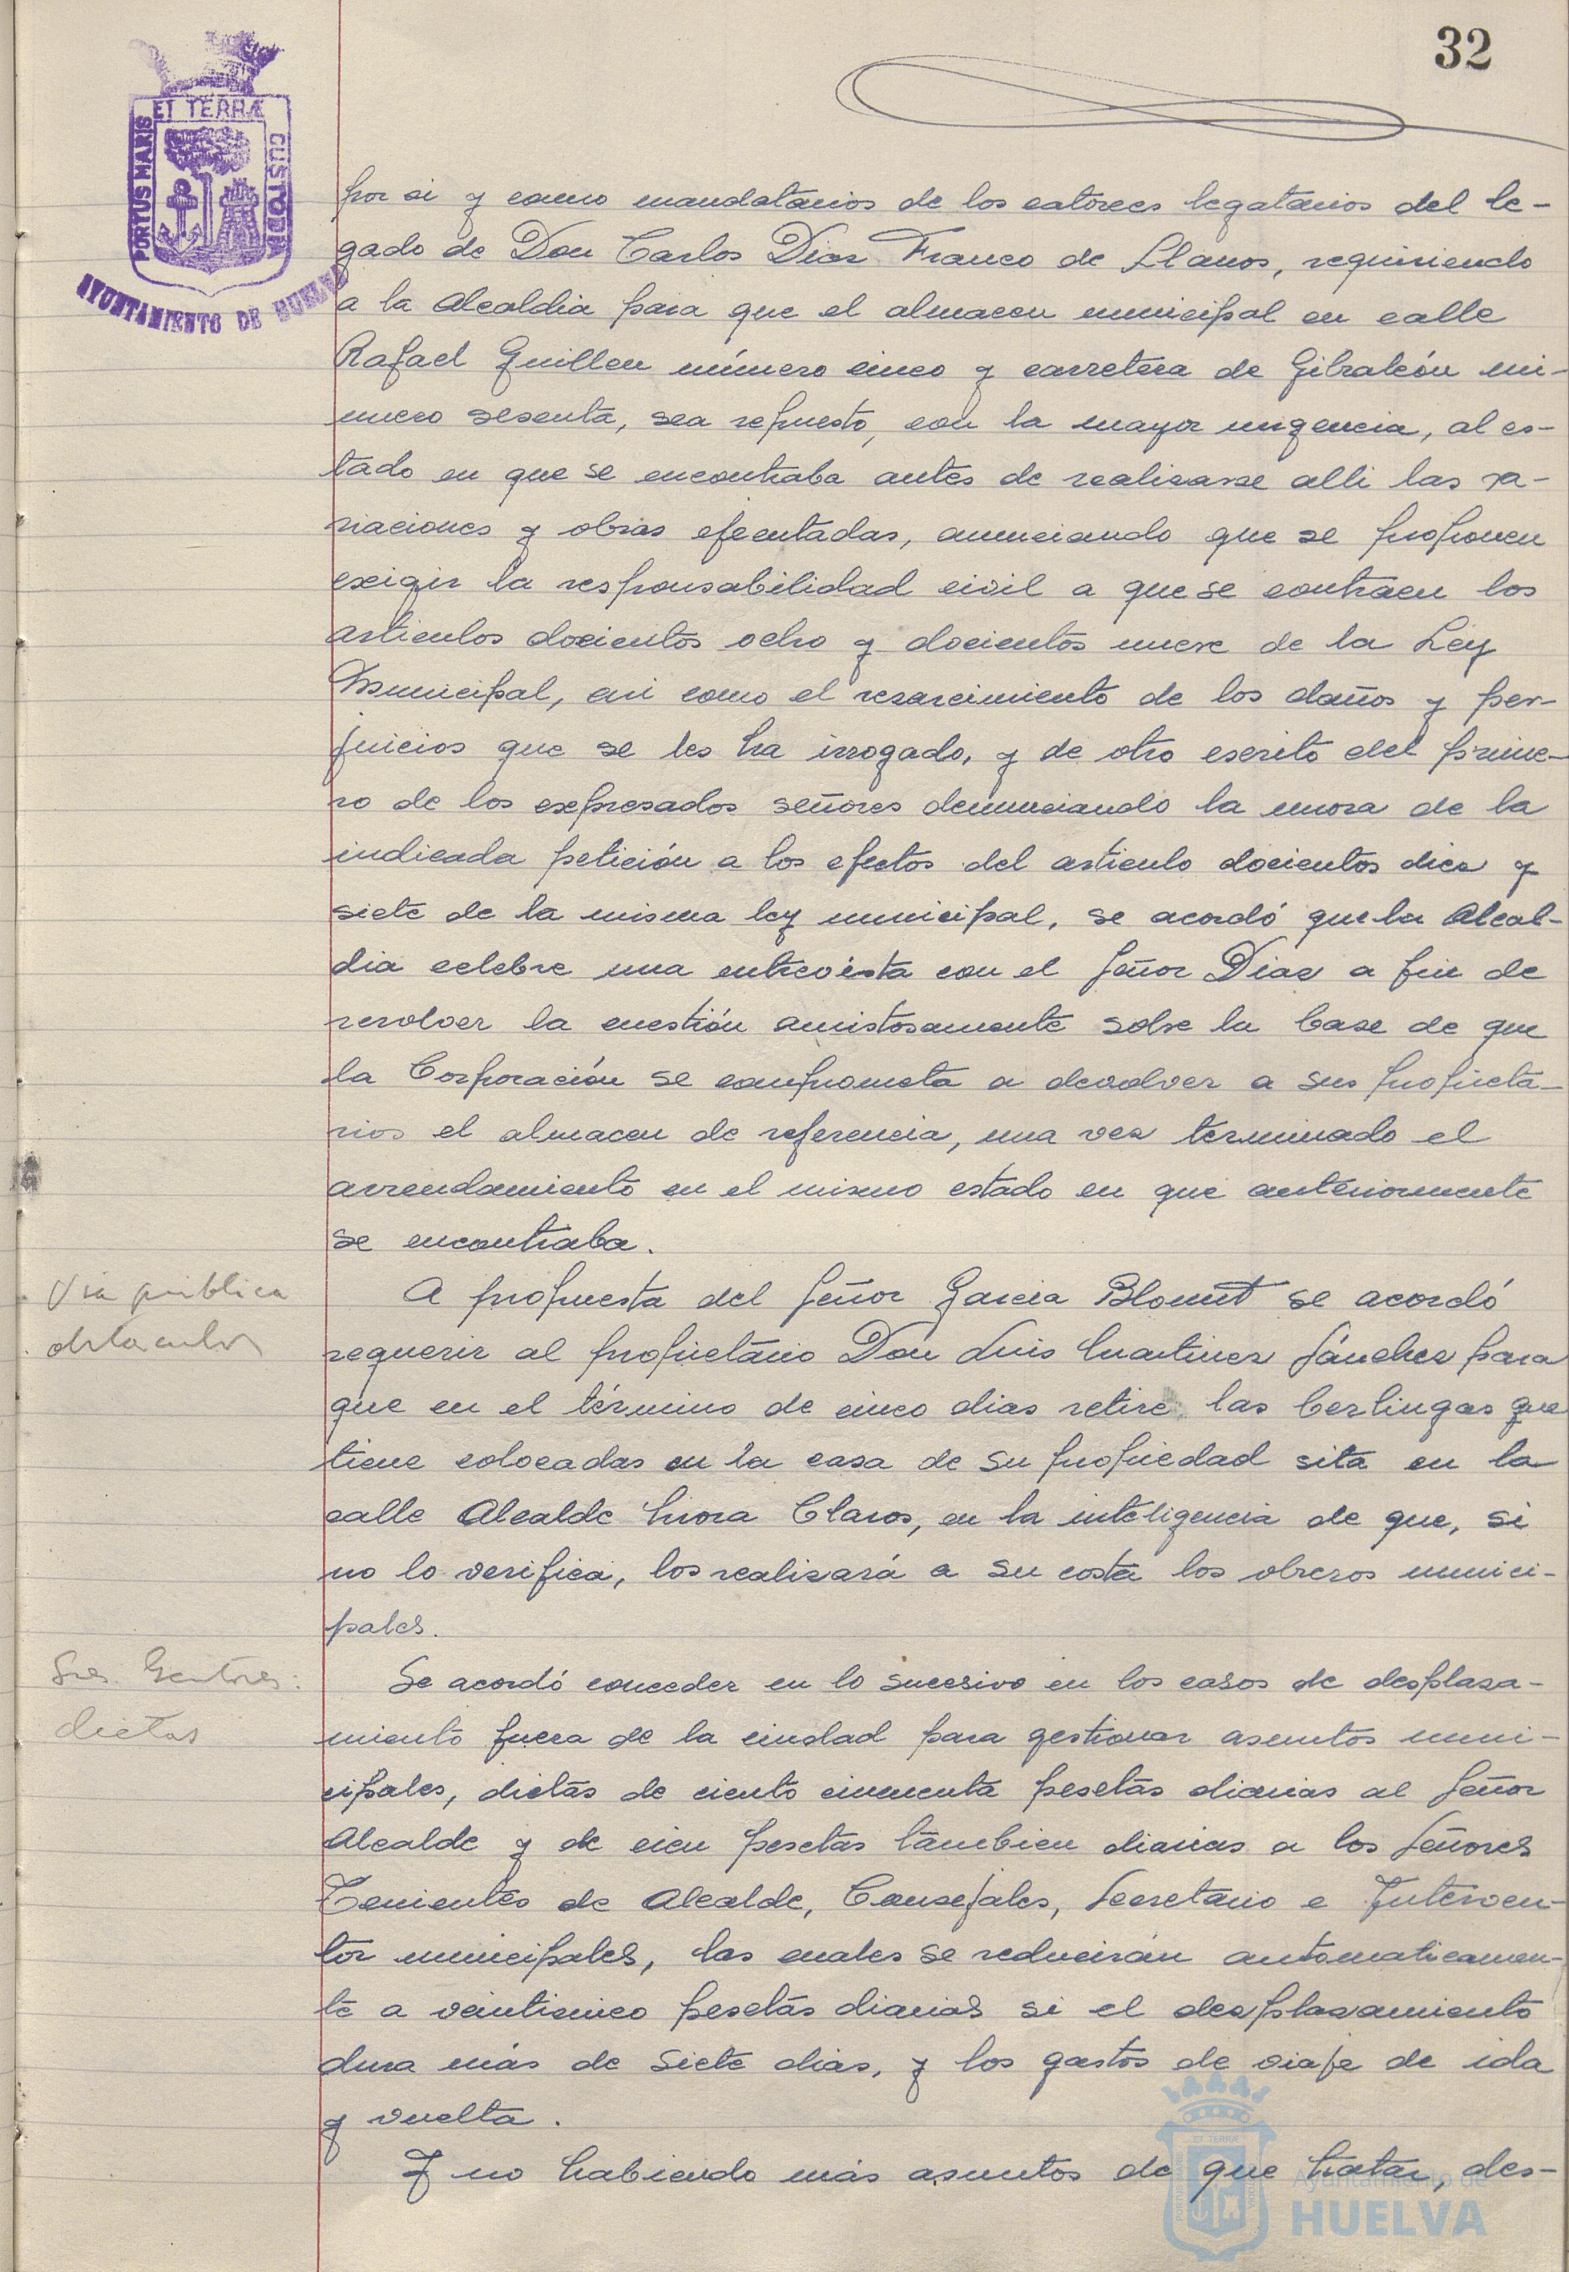 32
ET TERRÆ
PORTUS MARIS
CUSTODIA
AYUNTAMIENTO DE HUELVA
por si y como mandatarios de los catorces legatarios del le-
gado de Don Carlos Diaz Franco de Llanos, requiriendo
a la Alcaldia para que el almacen municipal en calle
Rafael Guillen número cinco y carretera de Gibraleón nú-
mero sesenta, sea repuesto, con la mayor urgencia, al es-
tado en que se encontraba antes de realizarse alli las va-
riaciones y obras efectuadas, anunciando que se proponen
exigir la responsabilidad civil a que se contraen los
articulos docientos ocho y docientos nueve de la Ley
Municipal, asi como el resarcimiento de los daños y per-
juicios que se les ha irrogado, y de otro escrito del prime-
ro de los expresados señores denunciando la mora de la
indicada petición a los efectos del articulo docientos diez y
siete de la misma ley municipal, se acordó que la Alcal-
dia celebre una entrevista con el Señor Diaz a fin de
resolver la cuestión amistosamente sobre la base de que
la Corporación se comprometa a devolver a sus propieta-
rios el almacen de referencia, una vez terminado el
arrendamiento en el mismo estado en que anteriormente
se encontraba.
Via publica
obstaculos
A propuesta del Señor Garcia Blomut se acordó
requerir al propietario Don Luis Martinez Sánchez para
que en el término de cinco dias retire las berlingas que
tiene colocadas en la casa de su propiedad sita en la
calle Alcalde Mora Claros, en la inteligencia de que, si
no lo verifica, los realizará a su costa los obreros munici-
pales.
Sres. Gestores:
dietas
Se acordó conceder en lo sucesivo en los casos de desplaza-
miento fuera de la ciudad para gestionar asuntos muni-
cipales, dietas de ciento cincuenta pesetas diarias al Señor
Alcalde y de cien pesetas tambien diarias a los Señores
Tenientes de Alcalde, Consejales, Secretario e Interven-
tor municipales, las cuales se reducirán automaticamen-
te a veinticinco pesetas diarias si el desplazamiento
dura más de siete dias, y los gastos de viaje de ida
y vuelta.
Y no habiendo más asuntos de que tratar, des-
Ayuntamiento de
HUELVA